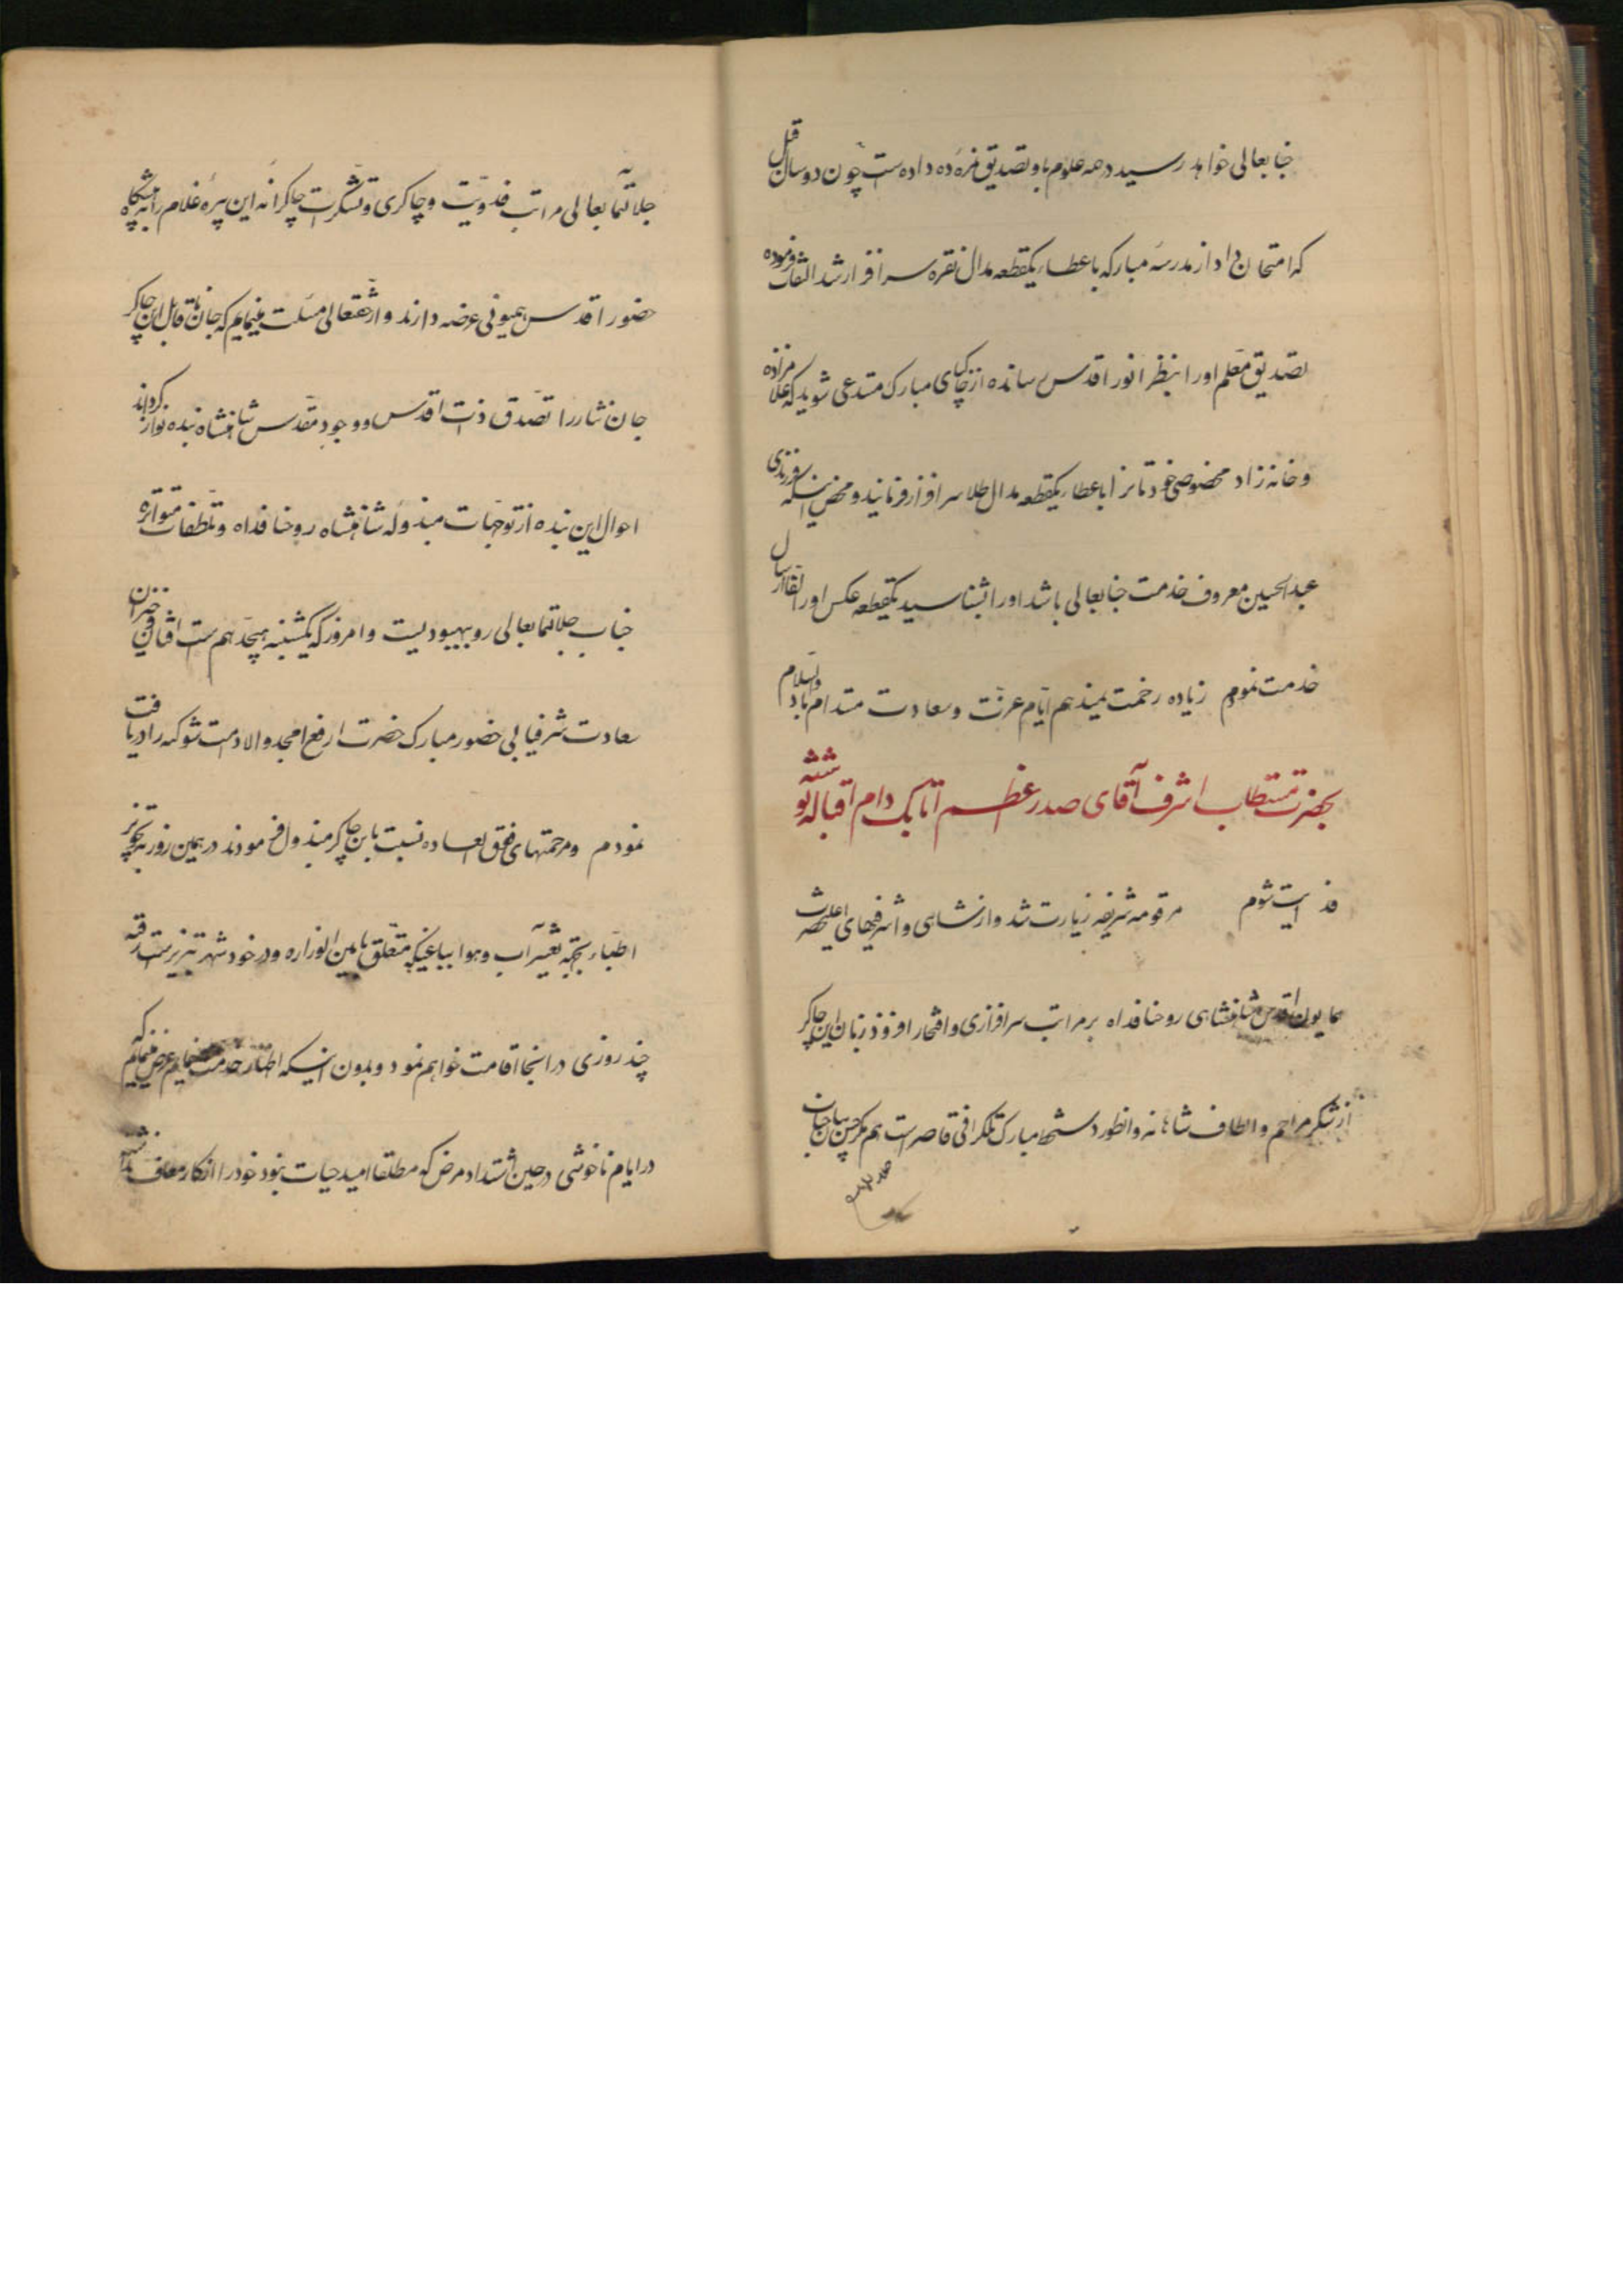 جنابعالی خواهد رسید در همه علوم باو تصدیق نمره ده داده است چون دو سال قبل
که امتحان داد از مدرسه مبارکه باعطاء یکقطعه مدال نقره سرافراز شد التفات فرموده
تصدیق معلم او را بنظر انور اقدس رسانده از خاکپای مبارک مستدعی شوید که غلامزاده
و خانه زاد مخصوص خودتانرا باعطاء یکقطعه مدال طلا سرافراز فرمایند و محض اینکه فرزندی
عبدالحسین معروف خدمت جنابعالی باشد او را بشناسید یکقطعه عکس او را لفاً ارسال
خدمت نمودم زیاده زحمت نمیدهم ایام عزت و سعادت مستدام باد والسلام
بحضرت مستطاب اشرف آقای صدر اعظم اتابک دام اقباله نوشته شد
فدایت شوم مرقومه شریفه زیارت شد و از نشاهی و اشرفیهای اعلیحضرت
همایون اقدس شاهنشاهی روحنا فداه بر مراتب سرافرازی و افتخار افزود زبان این چاکر
از تشکر مراحم و الطاف شاهانه و انطور دستخط مبارک تلگرافی قاصر است هم مگر حسن بیان جناب
جلالتمآبعالی مراتب فدویت و چاکری و تشکرات چاکرانه این پیره غلام را به پیشگاه
حضور اقدس همیونی عرضه دارند و از حقتعالی مسئلت مینمایم که جان ناقابل این چاکر
جان نثار را تصدق ذات اقدس و وجود مقدس شاهنشاه بنده نواز گرداند
احوال این بنده از توجهات مبذوله شاهنشاه روحنا فداه و تلطفات متواتره
جناب جلالتمآبعالی رو ببهبودیست و امروز که یکشنبه هیجدهم ست افتان و خیزان
سعادت شرفیابی حضور مبارک حضرت ارفع امجد والا دامت شوکته را دریافت
نمودم و مرحمتهای فوق العاده نسبت باین چاکر مبذول فرمودند در همین روز بتجویز
اطباء بجهة تغییر آب و هوا بباغیکه متعلق بامین الوزاره و در خود شهر تبریز ست رفته
چند روزی در اینجا اقامت خواهم نمود و بدون اینکه اظهار خدمت نمایم عرض مینمایم که
در ایام ناخوشی در حین اشتداد مرض که مطلقا امید حیات نبود خود را از کار معاف نداشته